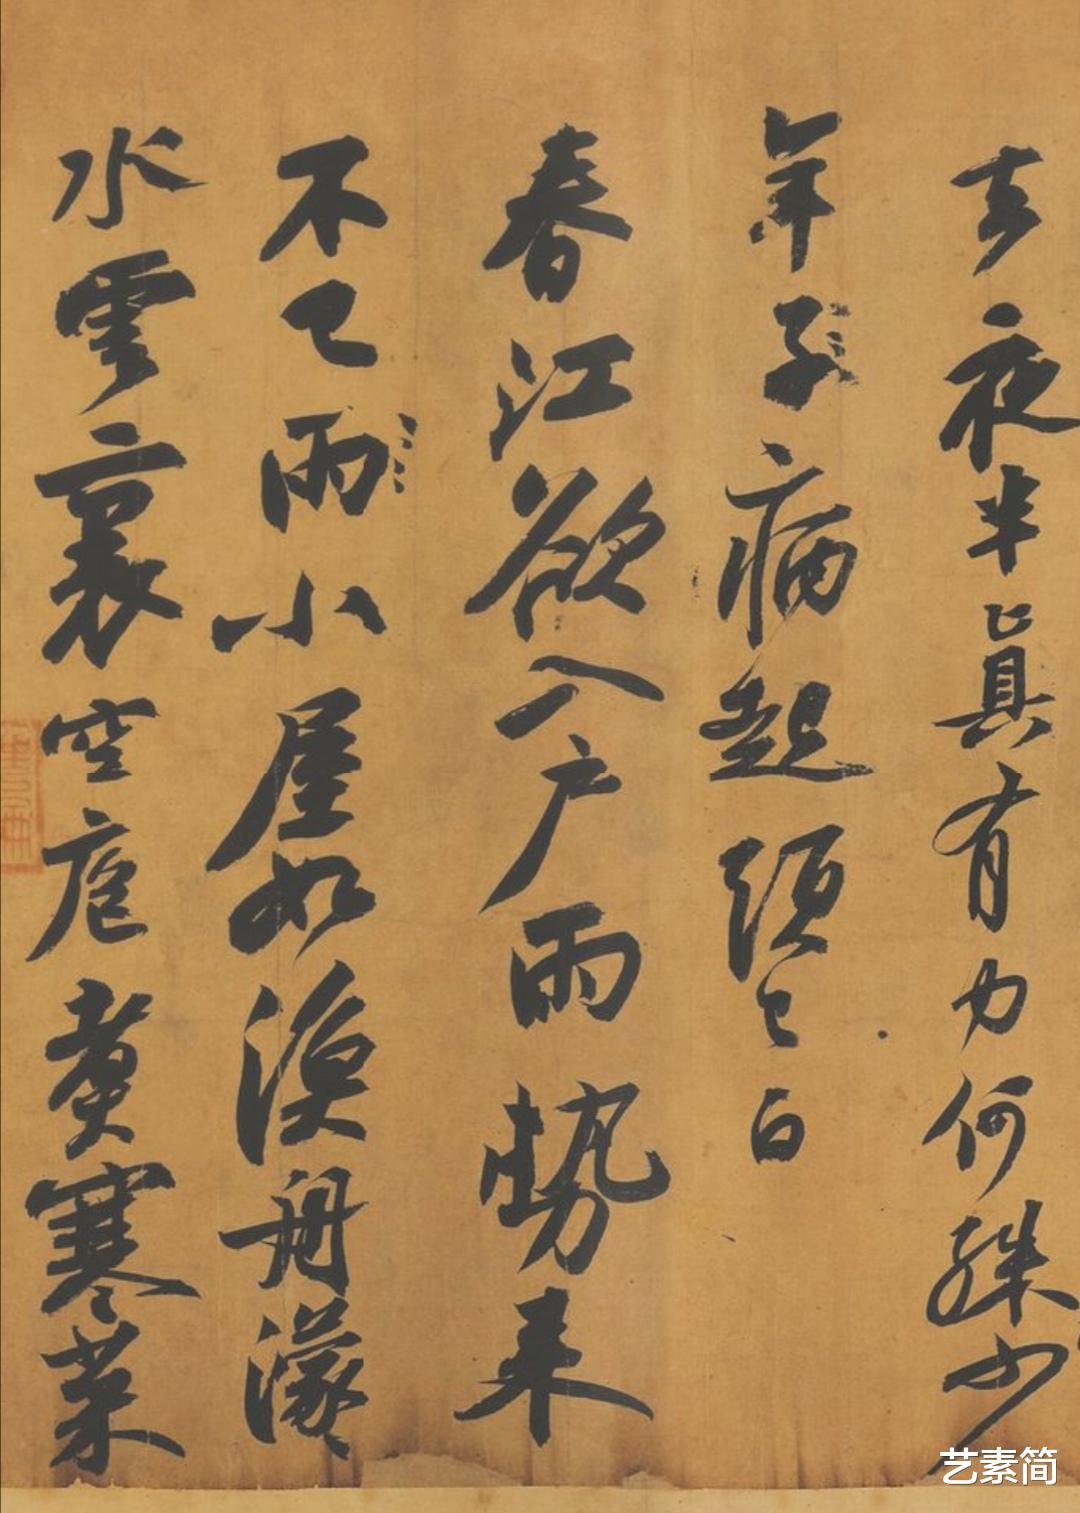 去夜半真有力何殊少
年子病起頭已白
春江欲入户雨勢来
不已雨小屋如漁舟濛
水雲裏空庖煮寒菜
艺素简